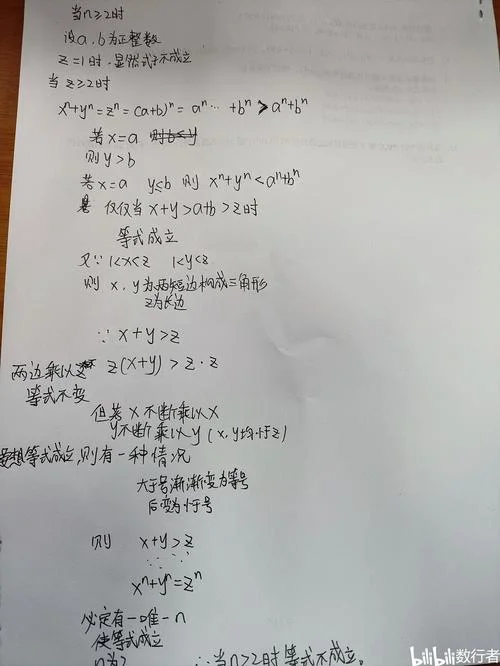 当n≥2时
设a,b为正整数
z=1时,显然式子不成立
当 z≥2时
xⁿ+yⁿ=zⁿ=(a+b)ⁿ=aⁿ… +bⁿ>aⁿ+bⁿ
若x=a 则b≤y
则y>b
若x=a y≤b 则 xⁿ+yⁿ<aⁿ+bⁿ
仅仅当 x+y>a+b>z时
等式成立
又∵ 1<x<z 1<y<z
则 x,y为两短边构成三角形
z为长边
∵ x+y>z
两边乘以z z(x+y)>z·z
等式不变
但若x不断乘以x
y不断乘以y(x,y均小于z)
要想等式成立,则有一种情况
大于号渐渐变为等号
后变为小于号
则 x+y>z
xⁿ+yⁿ=zⁿ
必定有一唯一n
使等式成立
n为2 ∴当n>2时等式不成立。
bilibili 数行者